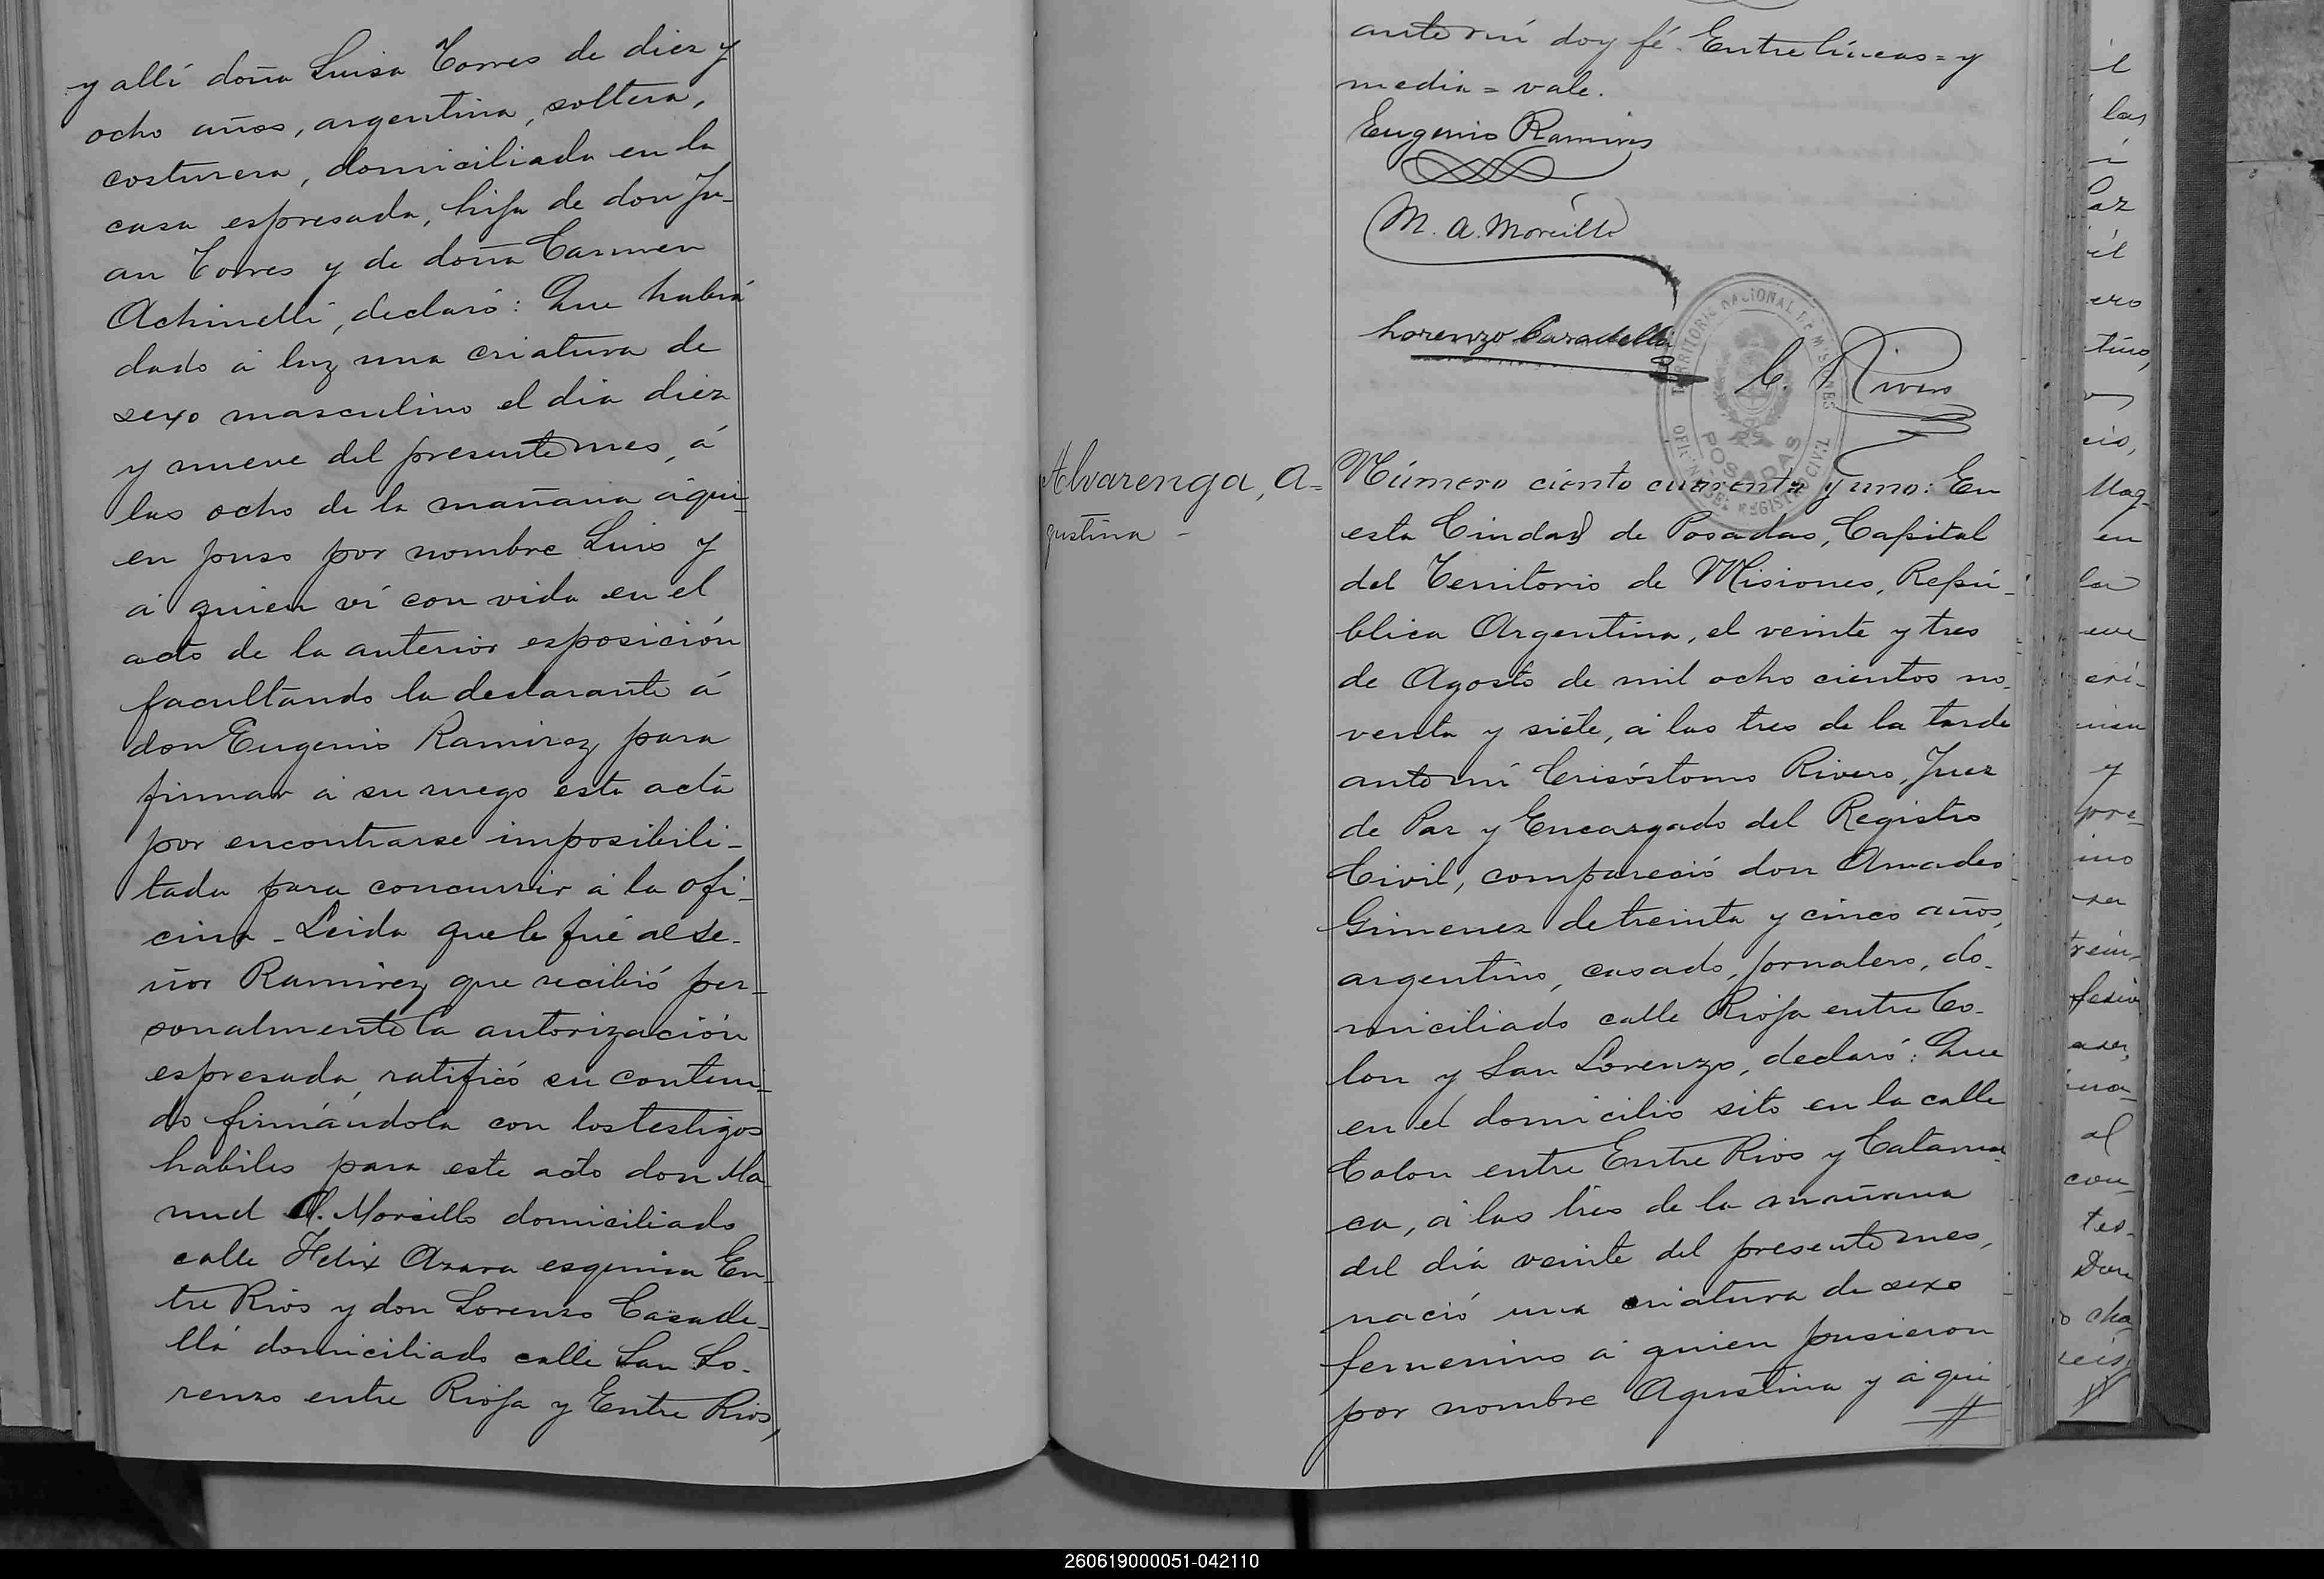 y allí doña Luisa Torres de diez y
ocho años, argentina, soltera,
costurera, domiciliada en la
casa espresada, hija de don Ju-
an Torres y de doña Carmen
Achinelli, declaró: Que habia
dado á luz una criatura de
sexo masculino el dia diez
y nueve del presente mes, á
las ocho de la mañana á qui-
en puso por nombre Luis y
á quien ví con vida en el
acto de la anterior esposición
facultando la declarante á
don Eugenio Ramirez para
firmar á su ruego esta acta
por encontrarse imposibili-
tada para concurrir á la ofi-
cina - Leida que le fué al se-
ñor Ramirez que recibió per-
sonalmente la autorización
espresada ratificó su conteni-
do firmándola con los testigos
habiles para este acto don Ma-
nuel A. Morcillo domiciliado
calle Felix Azara esquina En-
tre Rios y don Lorenzo Casade-
llá domiciliado calle San Lo-
renzo entre Rioja y Entre Rios,
ante mí doy fé. Entre líneas = y
media = vale.
Eugenio Ramires
M. A. Morcillo
Lorenzo Casadellá
C. Rivero
TERRITORIO NACIONAL DE MISIONES
POSADAS
OFICINA DEL REGISTRO CIVIL
Alvarenga, A-
gustina -
Número ciento cuarenta y uno: En
esta Ciudad de Posadas, Capital
del Territorio de Misiones, Repú-
blica Argentina, el veinte y tres
de Agosto de mil ocho cientos no-
venta y siete, á las tres de la tarde
ante mí Crisóstomo Rivero, Juez
de Paz y Encargado del Registro
Civil, compareció don Amadeo
Gimenez de treinta y cinco años,
argentino, casado, jornalero, do-
miciliado calle Rioja entre Co-
lon y San Lorenzo, declaró: Que
en el domicilio sito en la calle
Colon entre Entre Rios y Catamar-
ca, á las tres de la mañana
del día veinte del presente mes,
nació una criatura de sexo
femenino á quien pusieron
por nombre Agustina y á qui
260619000051-042110